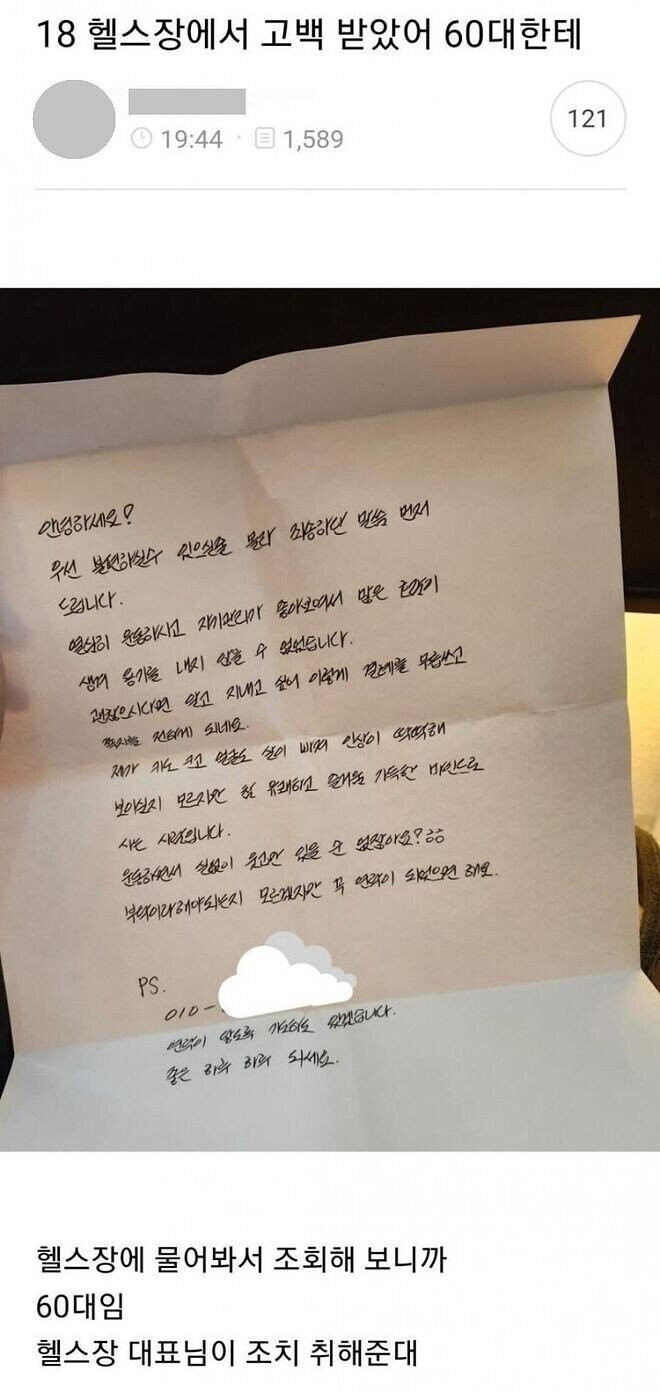 18 헬스장에서 고백 받았어 60대한테
19:44 · 1,589
121
안녕하세요?
우선 불편하실수 있으실을 몰라 죄송하단 말씀 먼저
드립니다.
열심히 운동하시고 자기관리가 좋아보여서 많은 호감이
생겨 용기를 내지 않을 수 없었습니다.
괜찮으시다면 알고 지내고 싶어 이렇게 결례를 무릅쓰고
쪽지를 전하게 되네요.
제가 키도 크고 얼굴도 살이 빠져 인상이 딱딱해
보이실지 모르지만 참 유쾌하고 즐거움 가득한 마인드로
사는 사람입니다.
운동하면서 실없이 웃고만 있을 순 없잖아요?
부탁이라해야되는지 모르겠지만 꼭 연락이 되었으면 해요.
PS.
010-
연락이 않도록 기도하고 있겠습니다.
좋은 하루 하루 되세요.
헬스장에 물어봐서 조회해 보니까
60대임
헬스장 대표님이 조치 취해준대